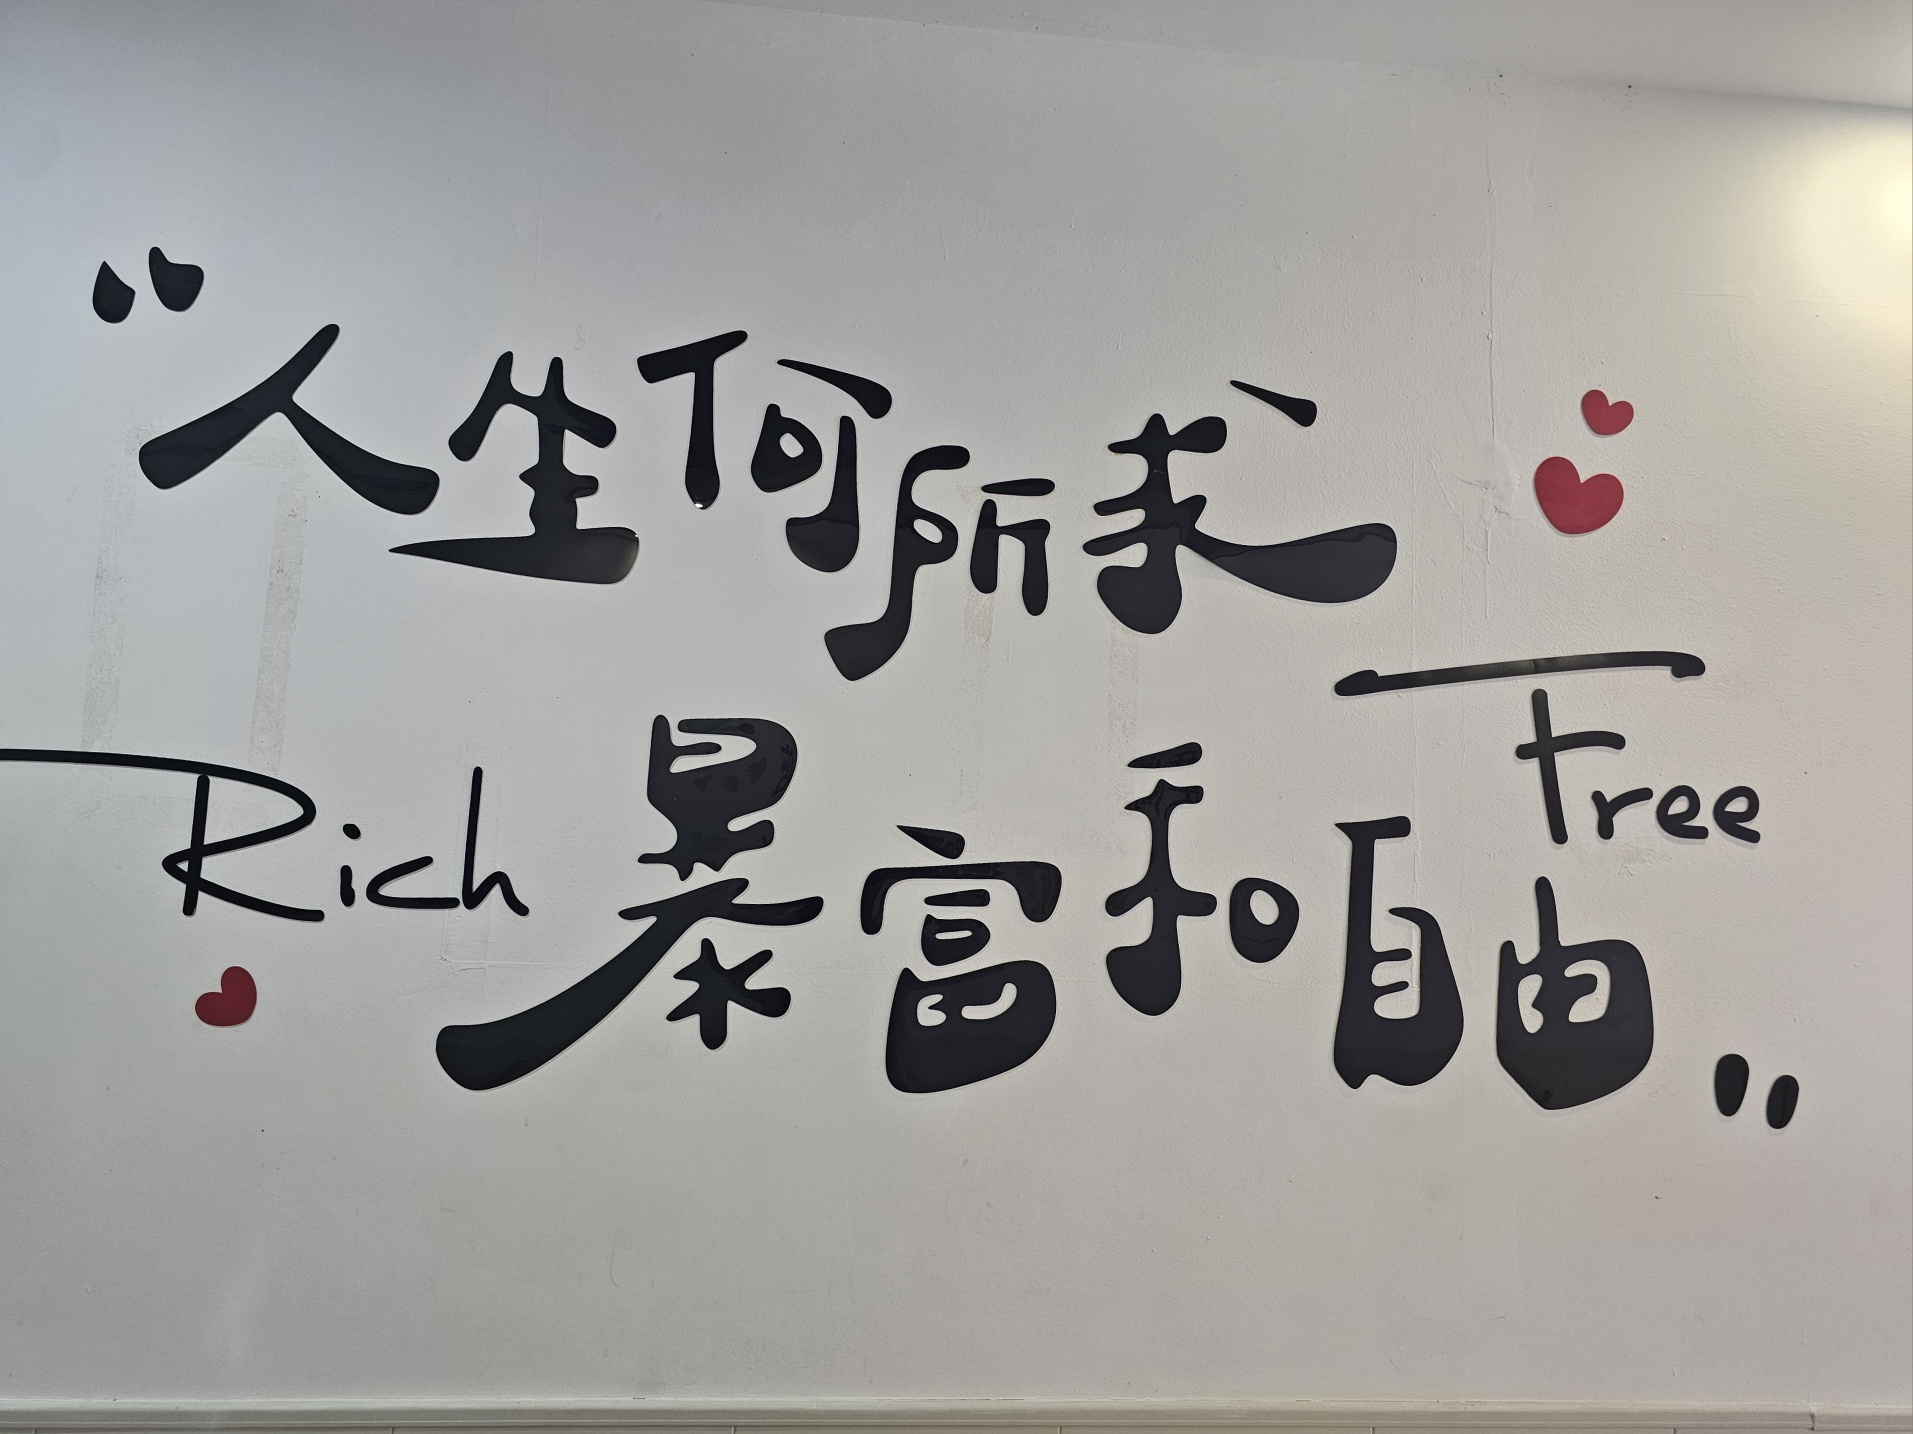 “人生何所求
Rich 暴富和自由 Free”